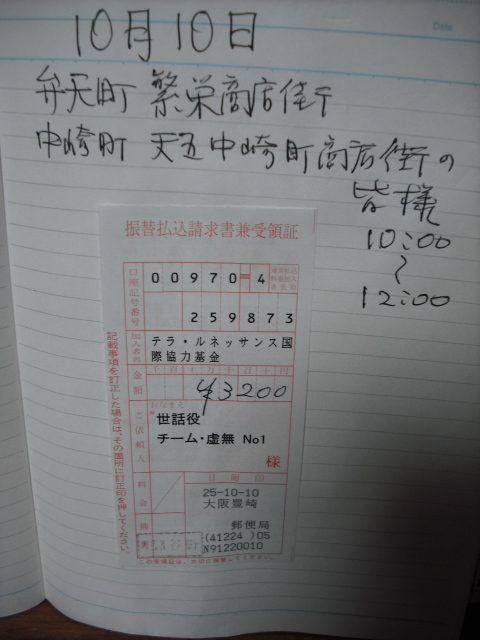 Date
10月10日
弁天町 繁栄商店街
中崎町 天五中崎町商店街の
皆様
10:00
〜
12:00
振替払込請求書兼受領証
口座記号番号
00970=4
通常払込料金加入者負担
259873
加入者名
テラ・ルネッサンス国
際協力基金
金額
千 百 十 万 千 百 十 円
¥3200
ご依頼人
おなまえ
世話役
チーム・虚無 No1
様
料金
日附印
25-10-10
大阪豊崎
郵便局
(41224 )05
N91220010
備考
記載事項を訂正した場合は、その箇所に訂正印を押してください。
この受領証は、大切に保管してください。